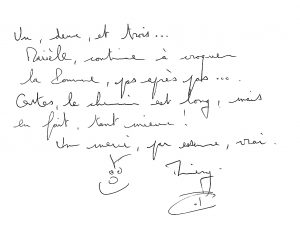 Un, deux, et trois...
continue à croquer
la Pomme, pas après pas...
Certes, le chemin est long, mais
en fait, tant mieux !
Un merci, par essence, vrai.
Thierry.